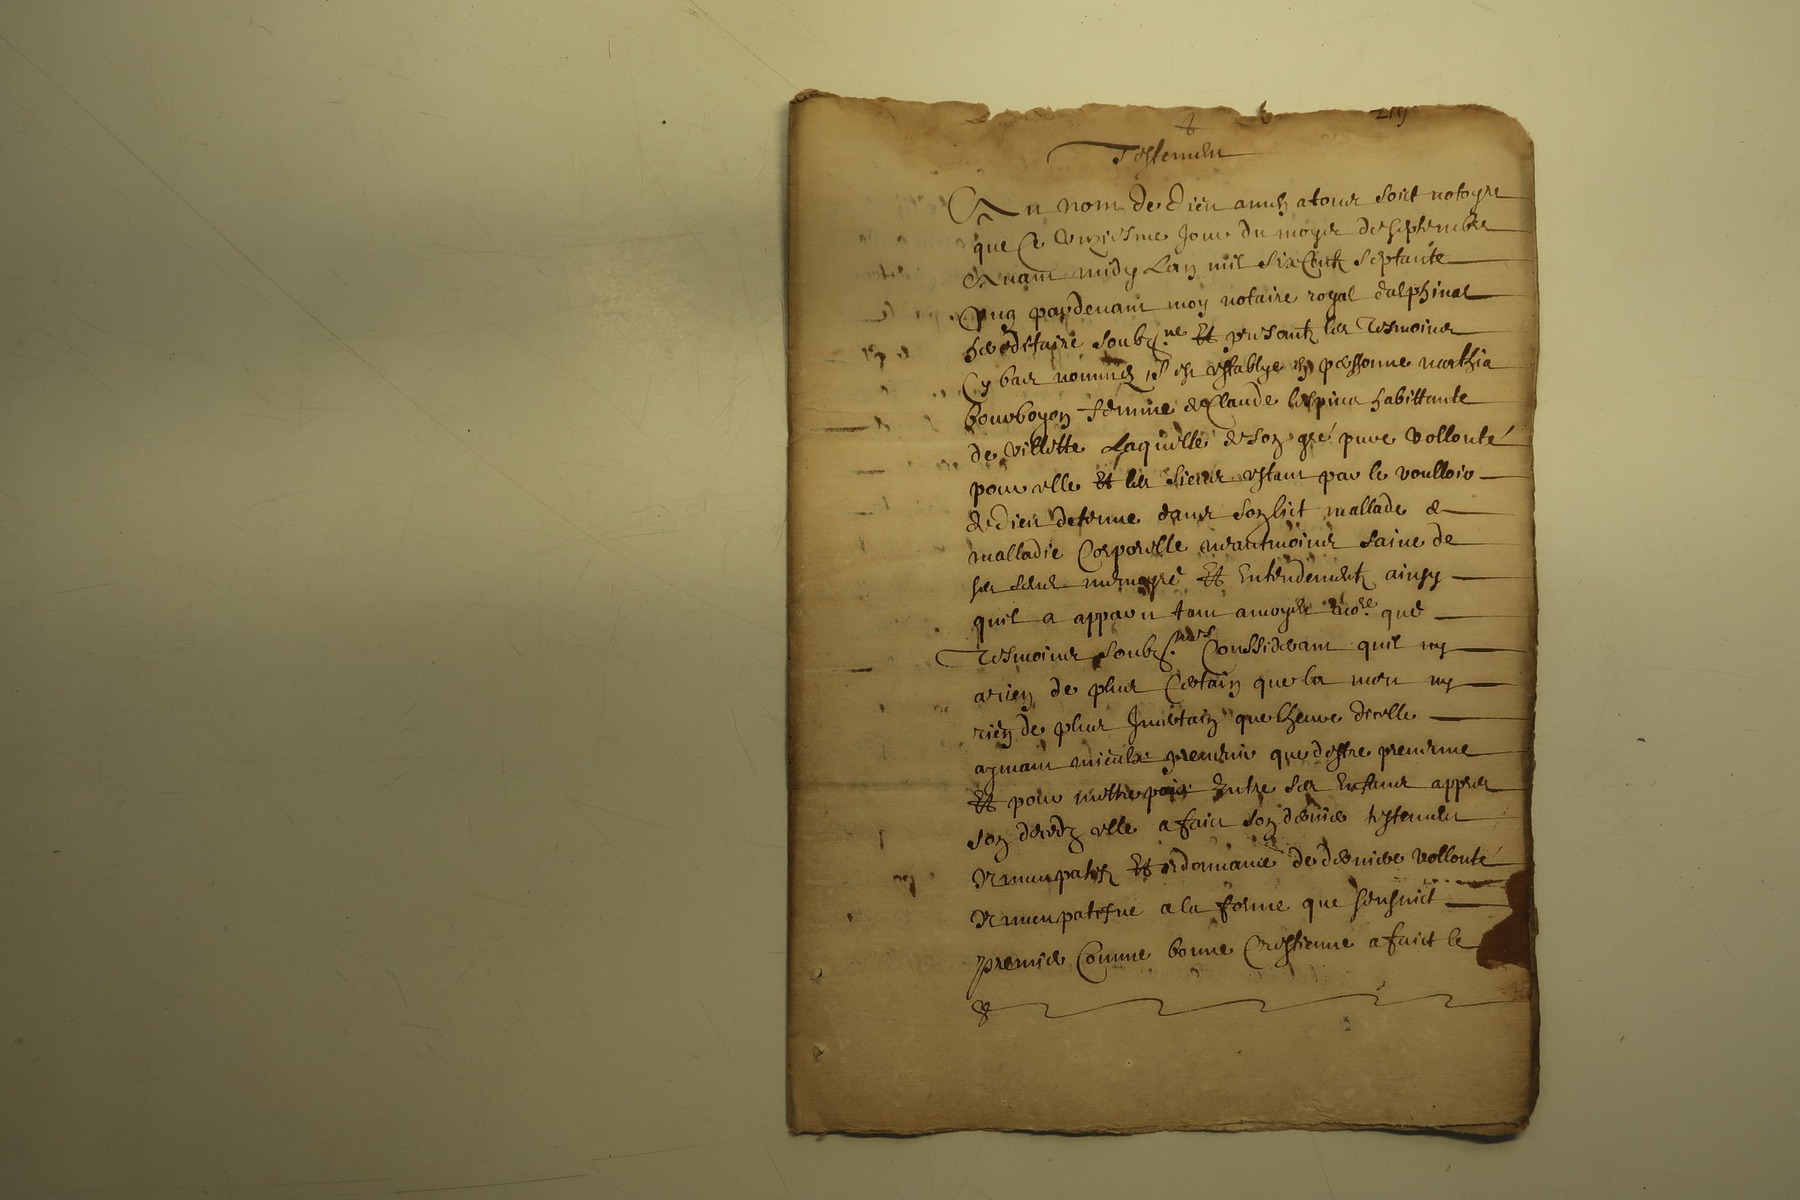 219
Testement
Au nom de Dieu amen a tous soict notoyre
que ce unziesme jour du moys de septembre
avant midy lan mil six centz septante
cinq pardevant moy notaire royal dalphinal
hereditaire soubz.ne Et presantz les tesmoins
cy bas nommés s est establye en personne
bourboyon femme de Claude lespina habittante
de villette Laquelle de son gré pure vollonté
pour elle Et les siens estant par le voulloir
de dieu detenue dans son lict mallade de
malladie Corporelle neantmoins saine de
ses sens memoyre Et Entendement ainsy
quil a apparu tant a moydit que
Tesmoins soubz.nes Conssiderant quil ny
a rien de plus Certain que la mort ny
rien de plus Jncertain que lheure dicelle
aymant mieulx prevenir que destre prevenue
Et pour mettre paix Entre ses Enfans appres
son decedz elle a faict son dernier testement
nuncupatif Et ordonnance de derniere vollonté
nuncupatifve a la forme que sensuict
premier Comme bonne Crestienne a faict le